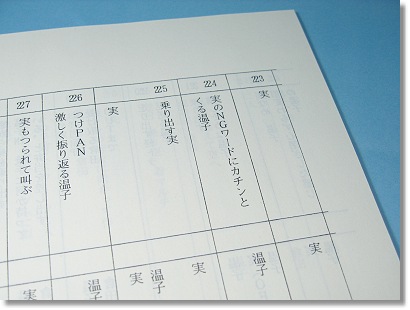 223
実
224
実のNGワードにカチンと
くる温子
225
乗り出す実
実
226
つけPAN
激しく振り返る温子
227
実もつられて叫ぶ
実
温子
実
温子
実
温子
実